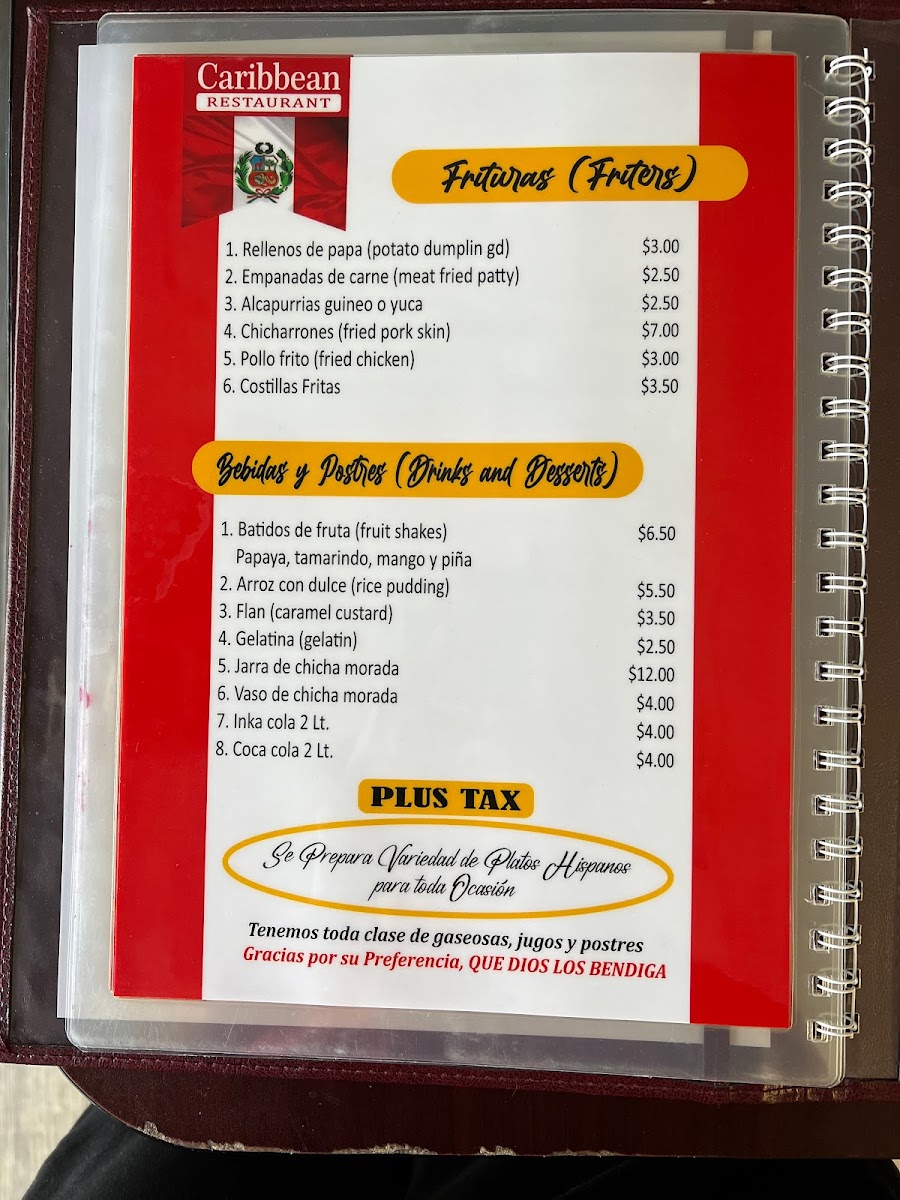 Caribbean
RESTAURANT
Frituras (Friters)
1. Rellenos de papa (potato dumplin gd) $3.00
2. Empanadas de carne (meat fried patty) $2.50
3. Alcapurrias guineo o yuca $2.50
4. Chicharrones (fried pork skin) $7.00
5. Pollo frito (fried chicken) $3.00
6. Costillas Fritas $3.50
Bebidas y Postres (Drinks and Desserts)
1. Batidos de fruta (fruit shakes) $6.50
Papaya, tamarindo, mango y piña
2. Arroz con dulce (rice pudding) $5.50
3. Flan (caramel custard) $3.50
4. Gelatina (gelatin) $2.50
5. Jarra de chicha morada $12.00
6. Vaso de chicha morada $4.00
7. Inka cola 2 Lt. $4.00
8. Coca cola 2 Lt. $4.00
PLUS TAX
Se Prepara Variedad de Platos Hispanos
para toda Ocasión
Tenemos toda clase de gaseosas, jugos y postres
Gracias por su Preferencia, QUE DIOS LOS BENDIGA